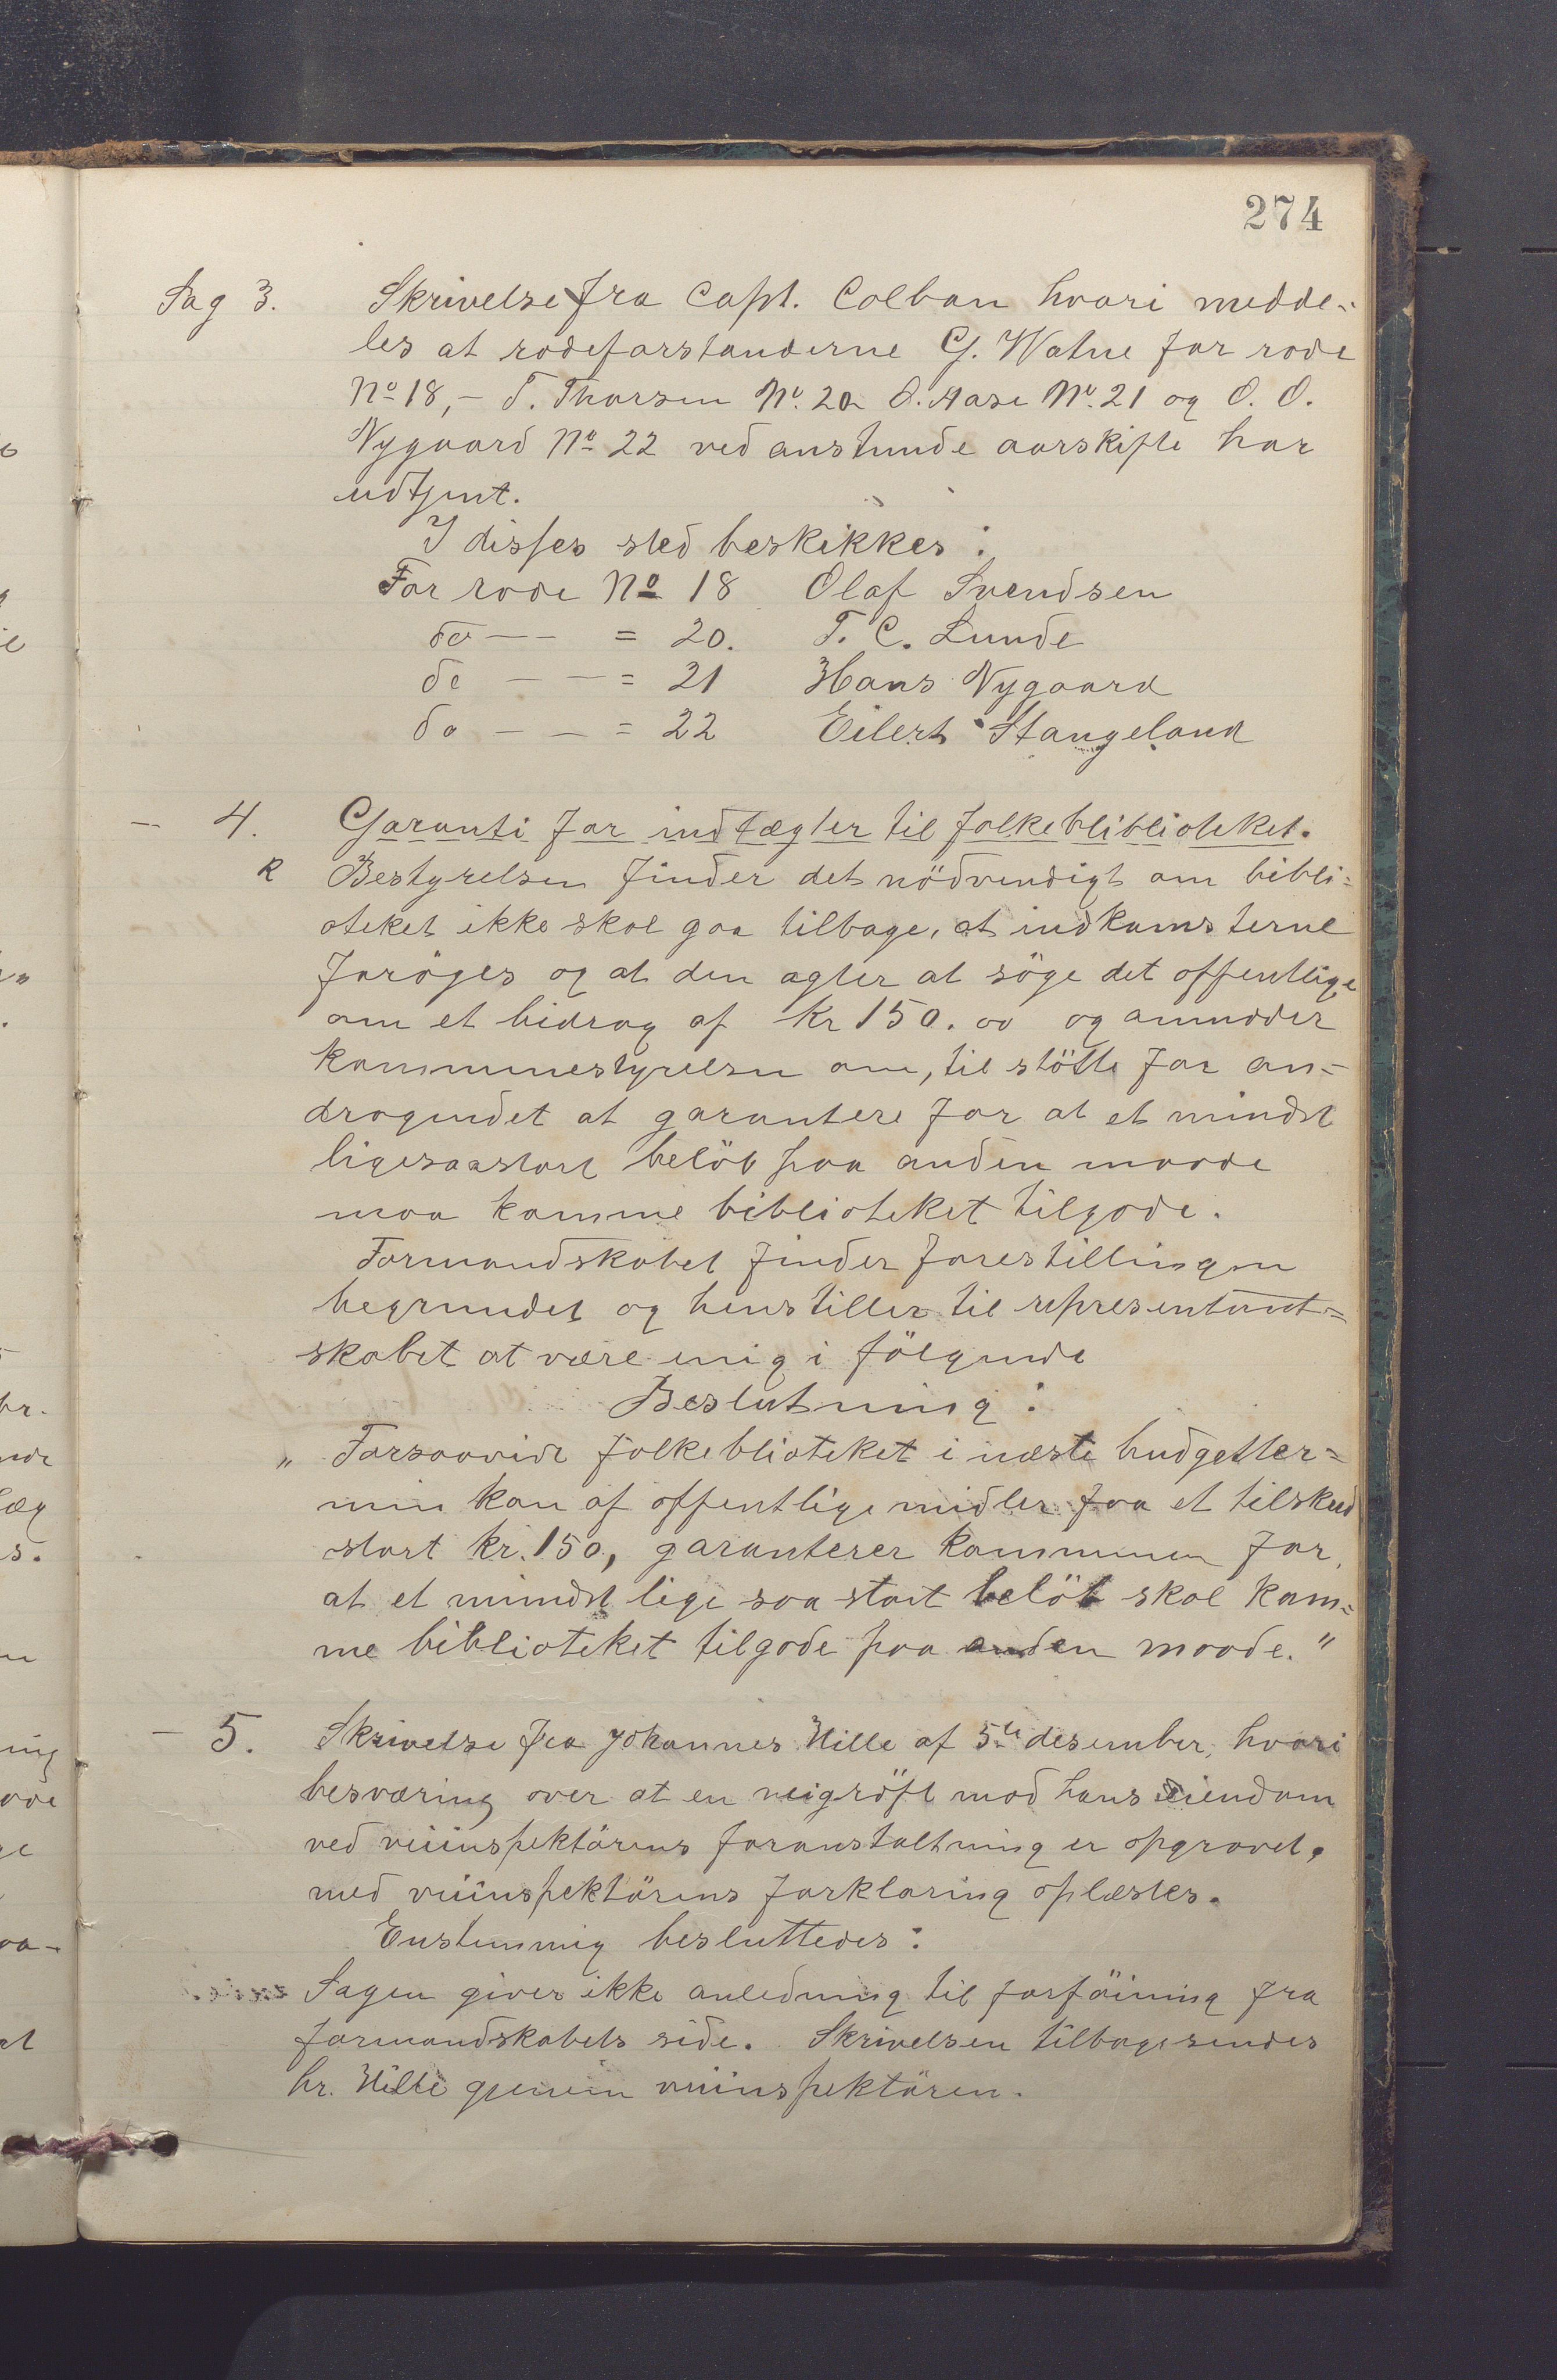 274
Sag 3. Skrivelse fra Capt. Colban hvori medde-
les at rodeforstanderne G. Watne for rode
No 18, – T. Thorsen No. 20 O. Aase No. 21 og O. O.
Nygaard No 22 ved anstunde aarskifte har
udtjent.
I disses sted beskikkes:
For rode No 18 Olaf Svendsen
do — — = 20. T. C. Lunde
do — — = 21 Hans Nygaard
do — — = 22 Eilert Stangeland
— 4. Garanti for indtægter til folkebliblioteket.
R Bestyrelsen finder det nödvendigt om bibli-
oteket ikke skal gaa tilbage, at indkomsterne
foröges og at den agter at söge det offentlige
om et bidrag af kr 150.00 og anmoder
kommunestyrelsen om, til stötte for an-
dragendet at garantere for at et mindst
ligesaastort belöb paa anden maade
maa komme biblioteket tilgode.
Formandskabet finder forestillingen
begrundet og henstiller til representant-
skabet at være enig i fölgende
Beslutning:
„ Forsaavidt folkeblioteket i næste budgetter-
min kan af offentlige midler faa et tilskud
stort kr. 150, garanterer kommunen for,
at et mindst lige saa stort belöb skal kom-
me biblioteket tilgode paa anden maade."
— 5. Skrivelse fra Johannes Hille af 5te desember, hvori
besværing over at en veigröft mod hans eiendom
ved veiinspektörens foranstaltning er opgravet,
med veiinspektörens forklaring oplæstes.
Enstemmig besluttedes:
Sagen giver ikke anledning til forföining fra
formandskabets side. Skrivelsen tilbagesendes
hr. Hille gjenem veiinspektören.